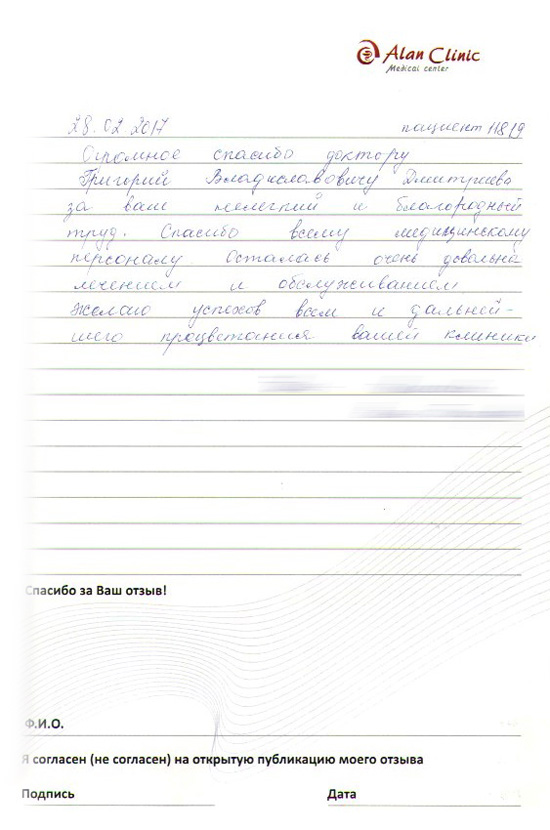 Alan Clinic
Medical center
28.02.2017 пациент 11819
Огромное спасибо доктору
Григорий Владиславовичу Дмитриева
за ваш нелегкий и благородный
труд. Спасибо всему медицинскому
персоналу. Осталась очень довольна
лечением и обслуживанием
Желаю успехов всем и дальней-
шего процветания вашей клиники
Спасибо за Ваш отзыв!
Ф.И.О.
Я согласен (не согласен) на открытую публикацию моего отзыва
Подпись Дата